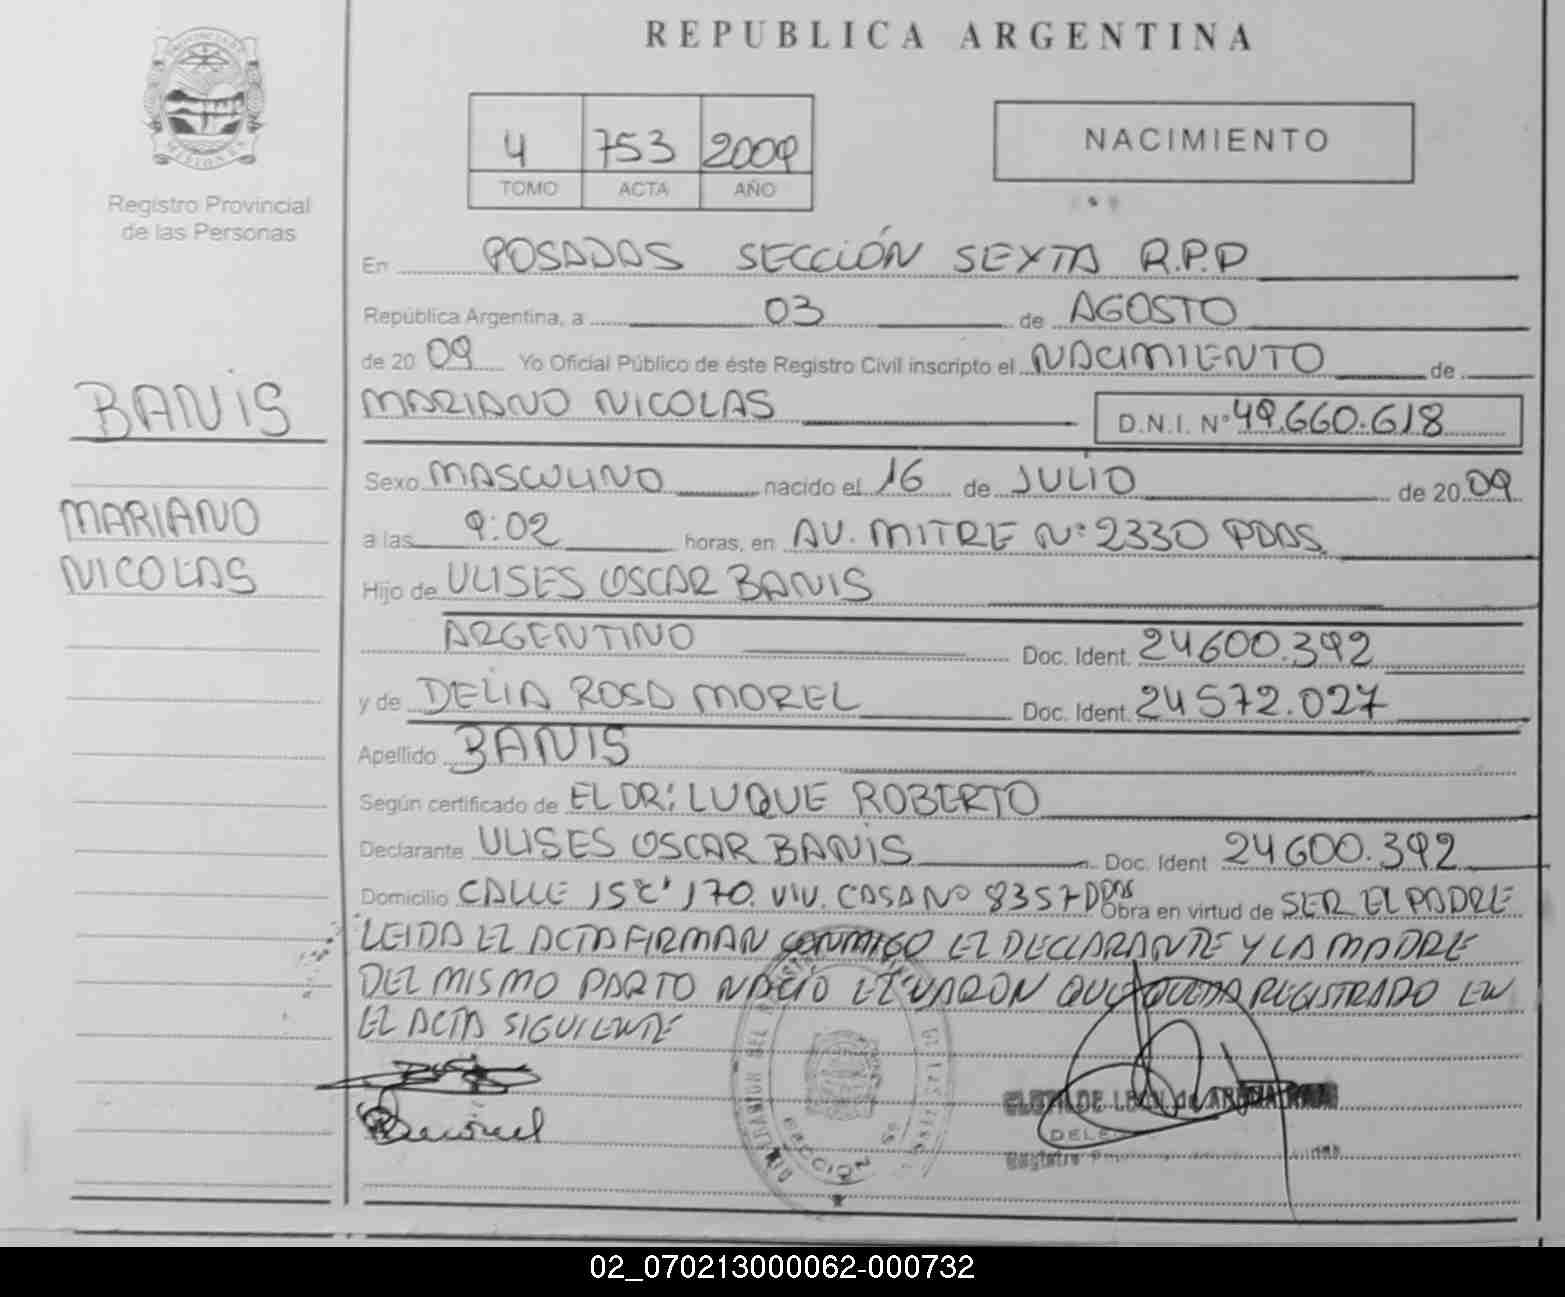 REPUBLICA ARGENTINA
PROVINCIA DE
MISIONES
Registro Provincial
de las Personas
4 753 2009
TOMO ACTA AÑO
NACIMIENTO
En POSADAS SECCIÓN SEXTA R.P.P
República Argentina, a 03 de AGOSTO
de 20 09 Yo Oficial Público de éste Registro Civil inscripto el NACIMIENTO de
MARIANO NICOLAS D.N.I. Nº 49.660.618
BANIS
MARIANO
NICOLAS
Sexo MASCULINO nacido el 16 de JULIO de 20 09
a las 9:02 horas, en AV. MITRE Nº 2330 PDAS
Hijo de ULISES OSCAR BANIS
ARGENTINO Doc. Ident. 24600.392
y de DELIA ROSA MOREL Doc. Ident. 24572.027
Apellido BANIS
Según certificado de EL DR: LUQUE ROBERTO
Declarante ULISES OSCAR BANIS Doc. Ident 24600.392
Domicilio CALLE 170. VIV. CASA Nº 8357 PDAS Obra en virtud de SER EL PADRE
LEIDA EL ACTA FIRMAN CONMIGO EL DECLARANTE Y LA MADRE
DEL MISMO PARTO NACIÓ EL VARON QUE QUEDA REGISTRADO EN
EL ACTA SIGUIENTE
SECCION
CLOTILDE LEON de
02_070213000062-000732